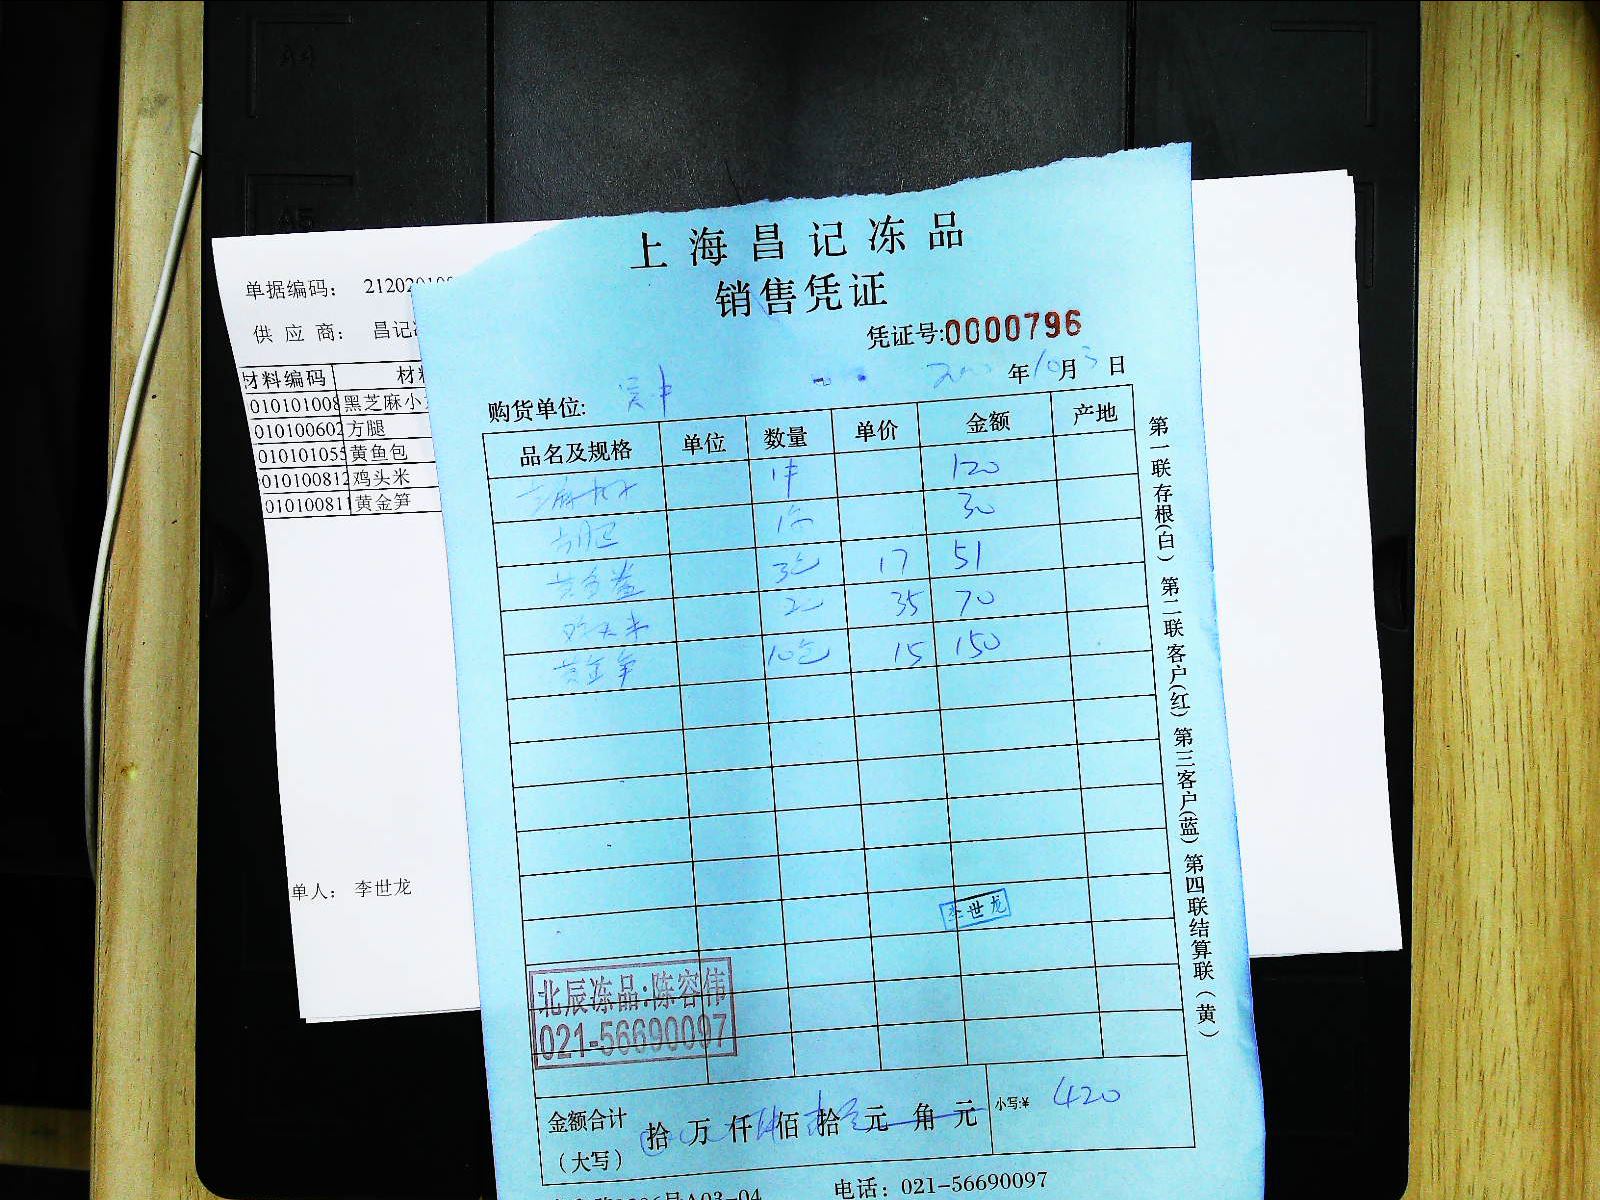 上海昌记冻品
销售凭证
凭证号:0000796
年10月3日
购货单位: 吴中
品名及规格 单位 数量 单价 金额 产地
1件 120
方腿 1 30
3包 17 51
鸡头米 2 35 70
黄金笋 10包 15 150
李世龙
北辰冻品:陈容伟
021-56690097
金额合计(大写) 拾 万 仟 佰 拾 元 角 元 小写:¥ 420
A03-04 电话: 021-56690097
第一联存根(白) 第二联客户(红) 第三客户(蓝) 第四联结算联(黄)
单据编码: 212020
供应商: 昌记
材料编码 材
010101008 黑芝麻小
010100602 方腿
010101055 黄鱼包
010100812 鸡头米
010100811 黄金笋
单人: 李世龙